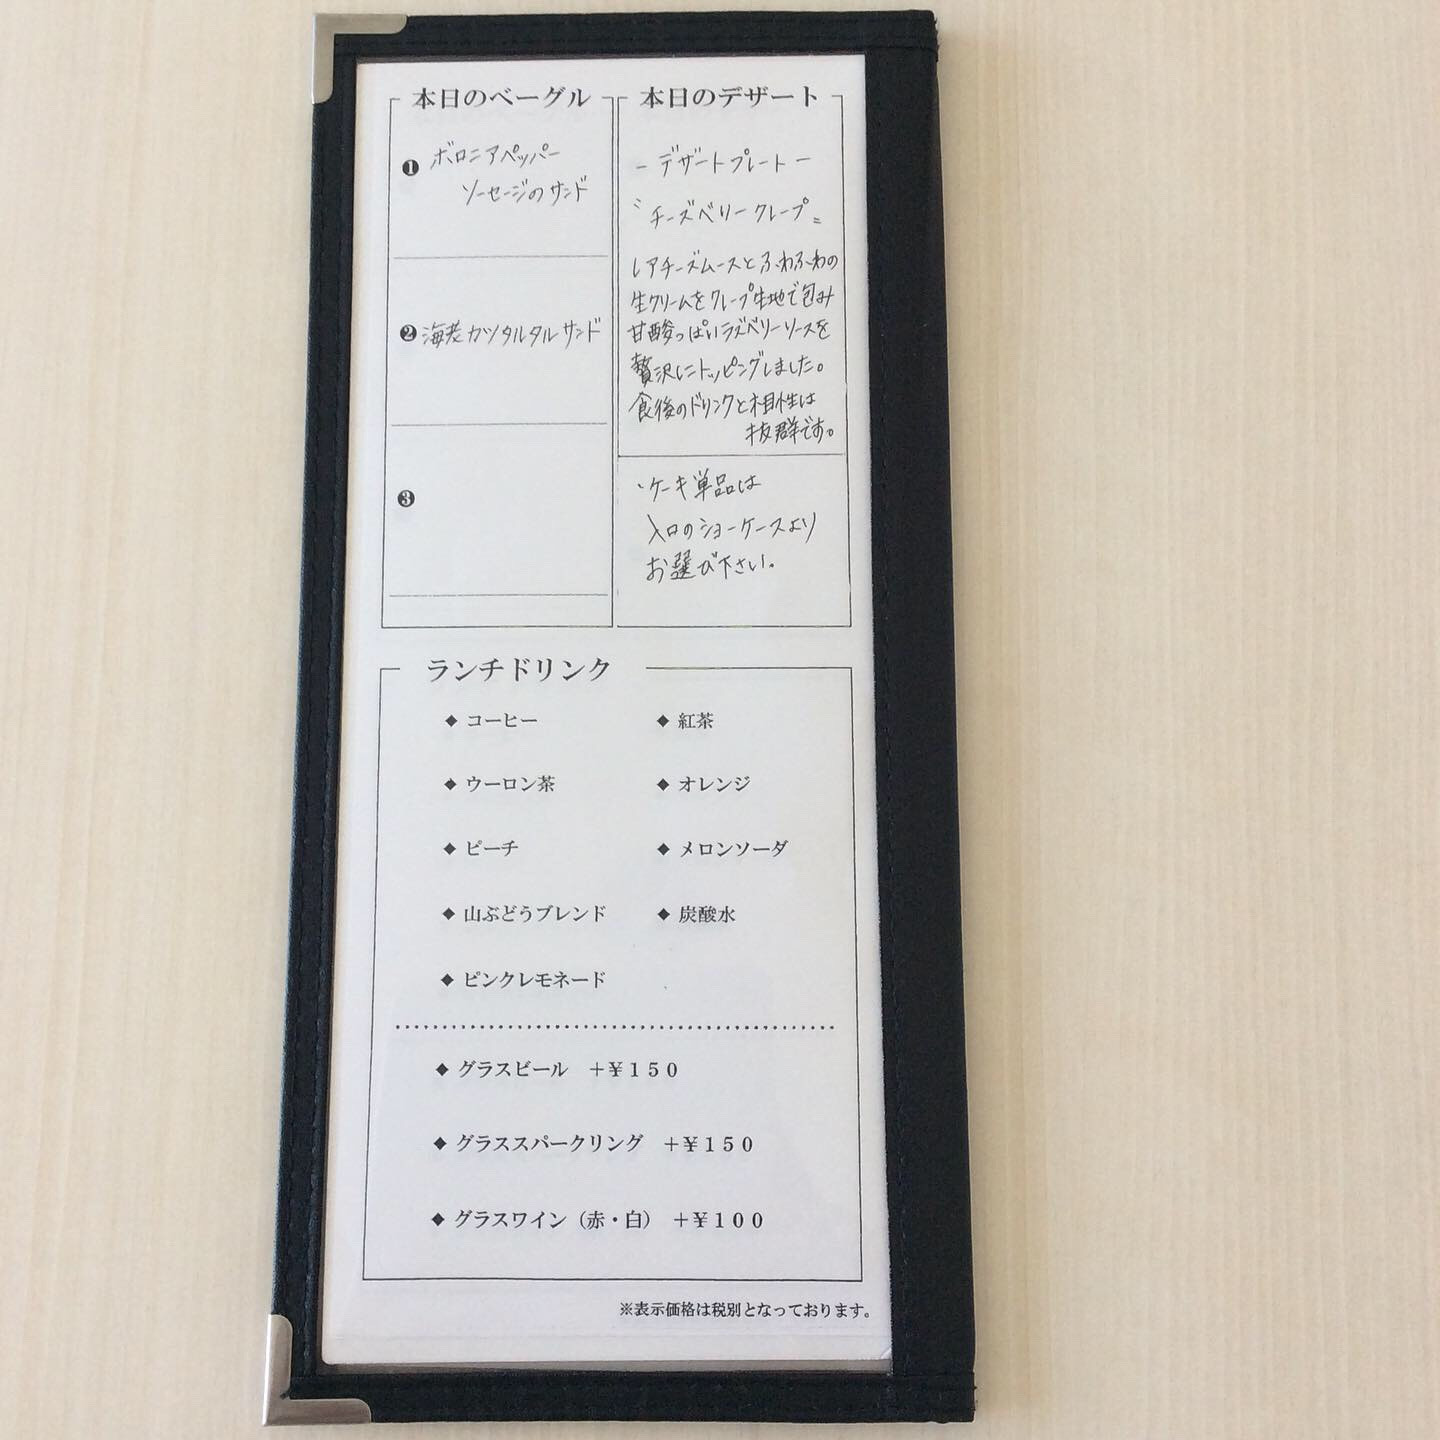 本日のベーグル
❶ ボロニアペッパー
ソーセージのサンド
❷ 海老カツタルタルサンド
❸
本日のデザート
ーデザートプレートー
〝チーズベリークレープ〟
レアチーズムースとふわふわの
生クリームをクレープ生地で包み
甘酸っぱいラズベリーソースを
贅沢にトッピングしました。
食後のドリンクと相性は
抜群です。
・ケーキ単品は
入口のショーケースより
お選び下さい。
ランチドリンク
◆ コーヒー ◆ 紅茶
◆ ウーロン茶 ◆ オレンジ
◆ ピーチ ◆ メロンソーダ
◆ 山ぶどうブレンド ◆ 炭酸水
◆ ピンクレモネード
◆ グラスビール ＋￥１５０
◆ グラススパークリング ＋￥１５０
◆ グラスワイン（赤・白） ＋￥１００
※表示価格は税別となっております。